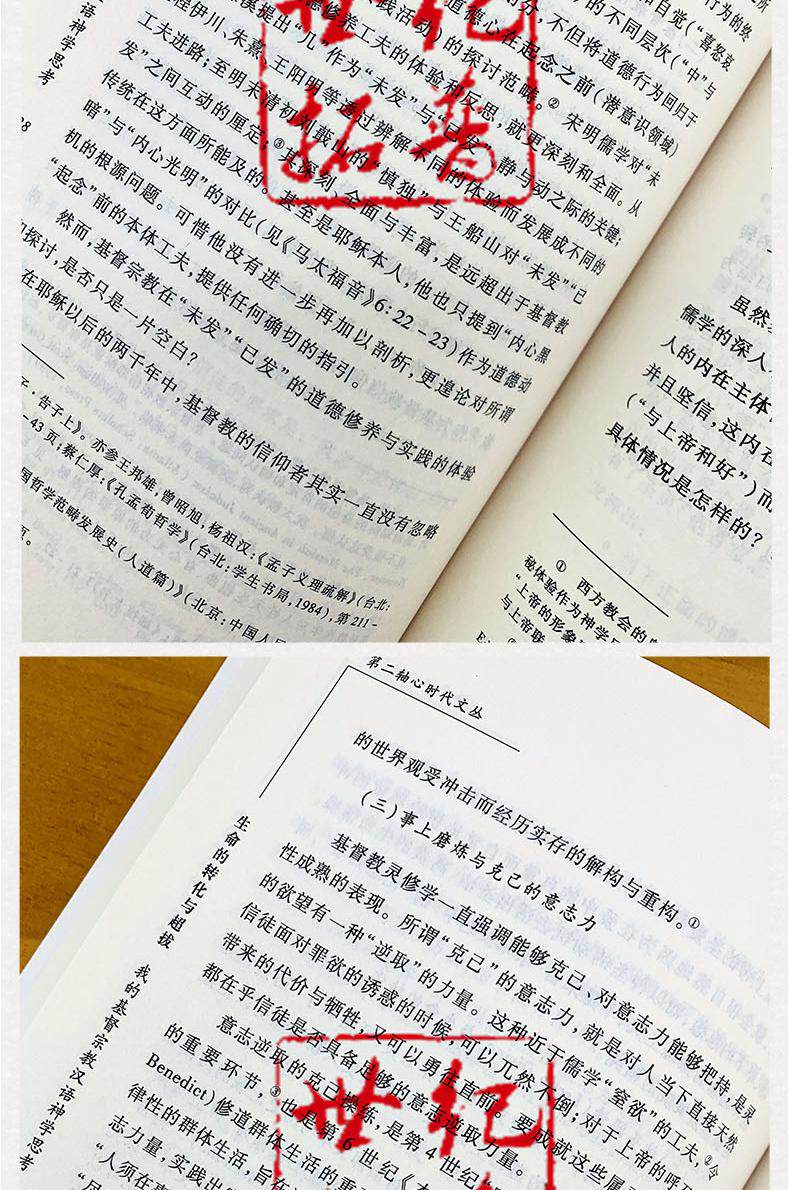 汉语神学思考
28
行为的终
和自觉(“喜怒哀
的不同层次(“中”与
部分,不但将道德行为回归于
道德心在起念之前(潜意识领域)
践活动)的探讨范畴。② 宋明儒学对“未
修养工夫的体验和反思,就更深刻和全面。从
溪提出“几”作为“未发”与“已发”、静与动之际的关键;
程伊川、朱熹、王阳明等透过辨解不同的体验而发展成不同的
工夫进路;至明末清初刘蕺山的“慎独”与王船山对“未发”“已
发”之间互动的厘定;③其深刻、全面与丰富,是远超出于基督教
传统在这方面所能及的。甚至是耶稣本人,他也只提到“内心黑
暗”与“内心光明”的对比(见《马太福音》6:22-23)作为道德动
机的根源问题。可惜他没有进一步再加以剖析,更遑论对所谓
“起念”前的本体工夫,提供任何确切的指引。
然而,基督宗教在“未发”“已发”的道德修养与实践的体验
探讨,是否只是一片空白?
在耶稣以后的两千年中,基督教的信仰者其实一直没有忽略
子·告子上》。亦参王邦雄,曾昭旭,杨祖汉:《孟子义理疏解》(台北:
43页;蔡仁厚:《孔孟荀哲学》(台北:学生书局,1984),第211-
国哲学范畴发展史(人道篇)》(北京:中国人民
页。
虽然
儒学的深入
人的内在主体
并且坚信,这内在
(“与上帝和好”)而
具体情况是怎样的?
① 西方教会的
秘体验作为神学
“上帝的形象
与上帝联
世纪
拓普
第二轴心时代文丛
生命的转化与超拔 我的基督宗教汉语神学思考
的世界观受冲击而经历实存的解构与重构。①
(三)事上磨炼与克己的意志力
基督教灵修学一直强调能够克己,对意志力能够把持,是灵
性成熟的表现。所谓“克己”的意志力,就是对人当下直接天然
的欲望有一种“逆取”的力量。这种近于儒学“窒欲”的工夫,②令
信徒面对罪欲的诱惑的时候,可以兀然不倒;对于上帝的呼
带来的代价与牺牲,又可以勇往直前。要成就这些属
都在乎信徒是否具备足够的意志逆取力量。
意志逆取的克己操练,是第4世纪
的重要环节,③也是第6世纪《本
Benedict)修道群体生活的重
律性的群体生活,旨在
志力量,实践出
“人须在
世纪